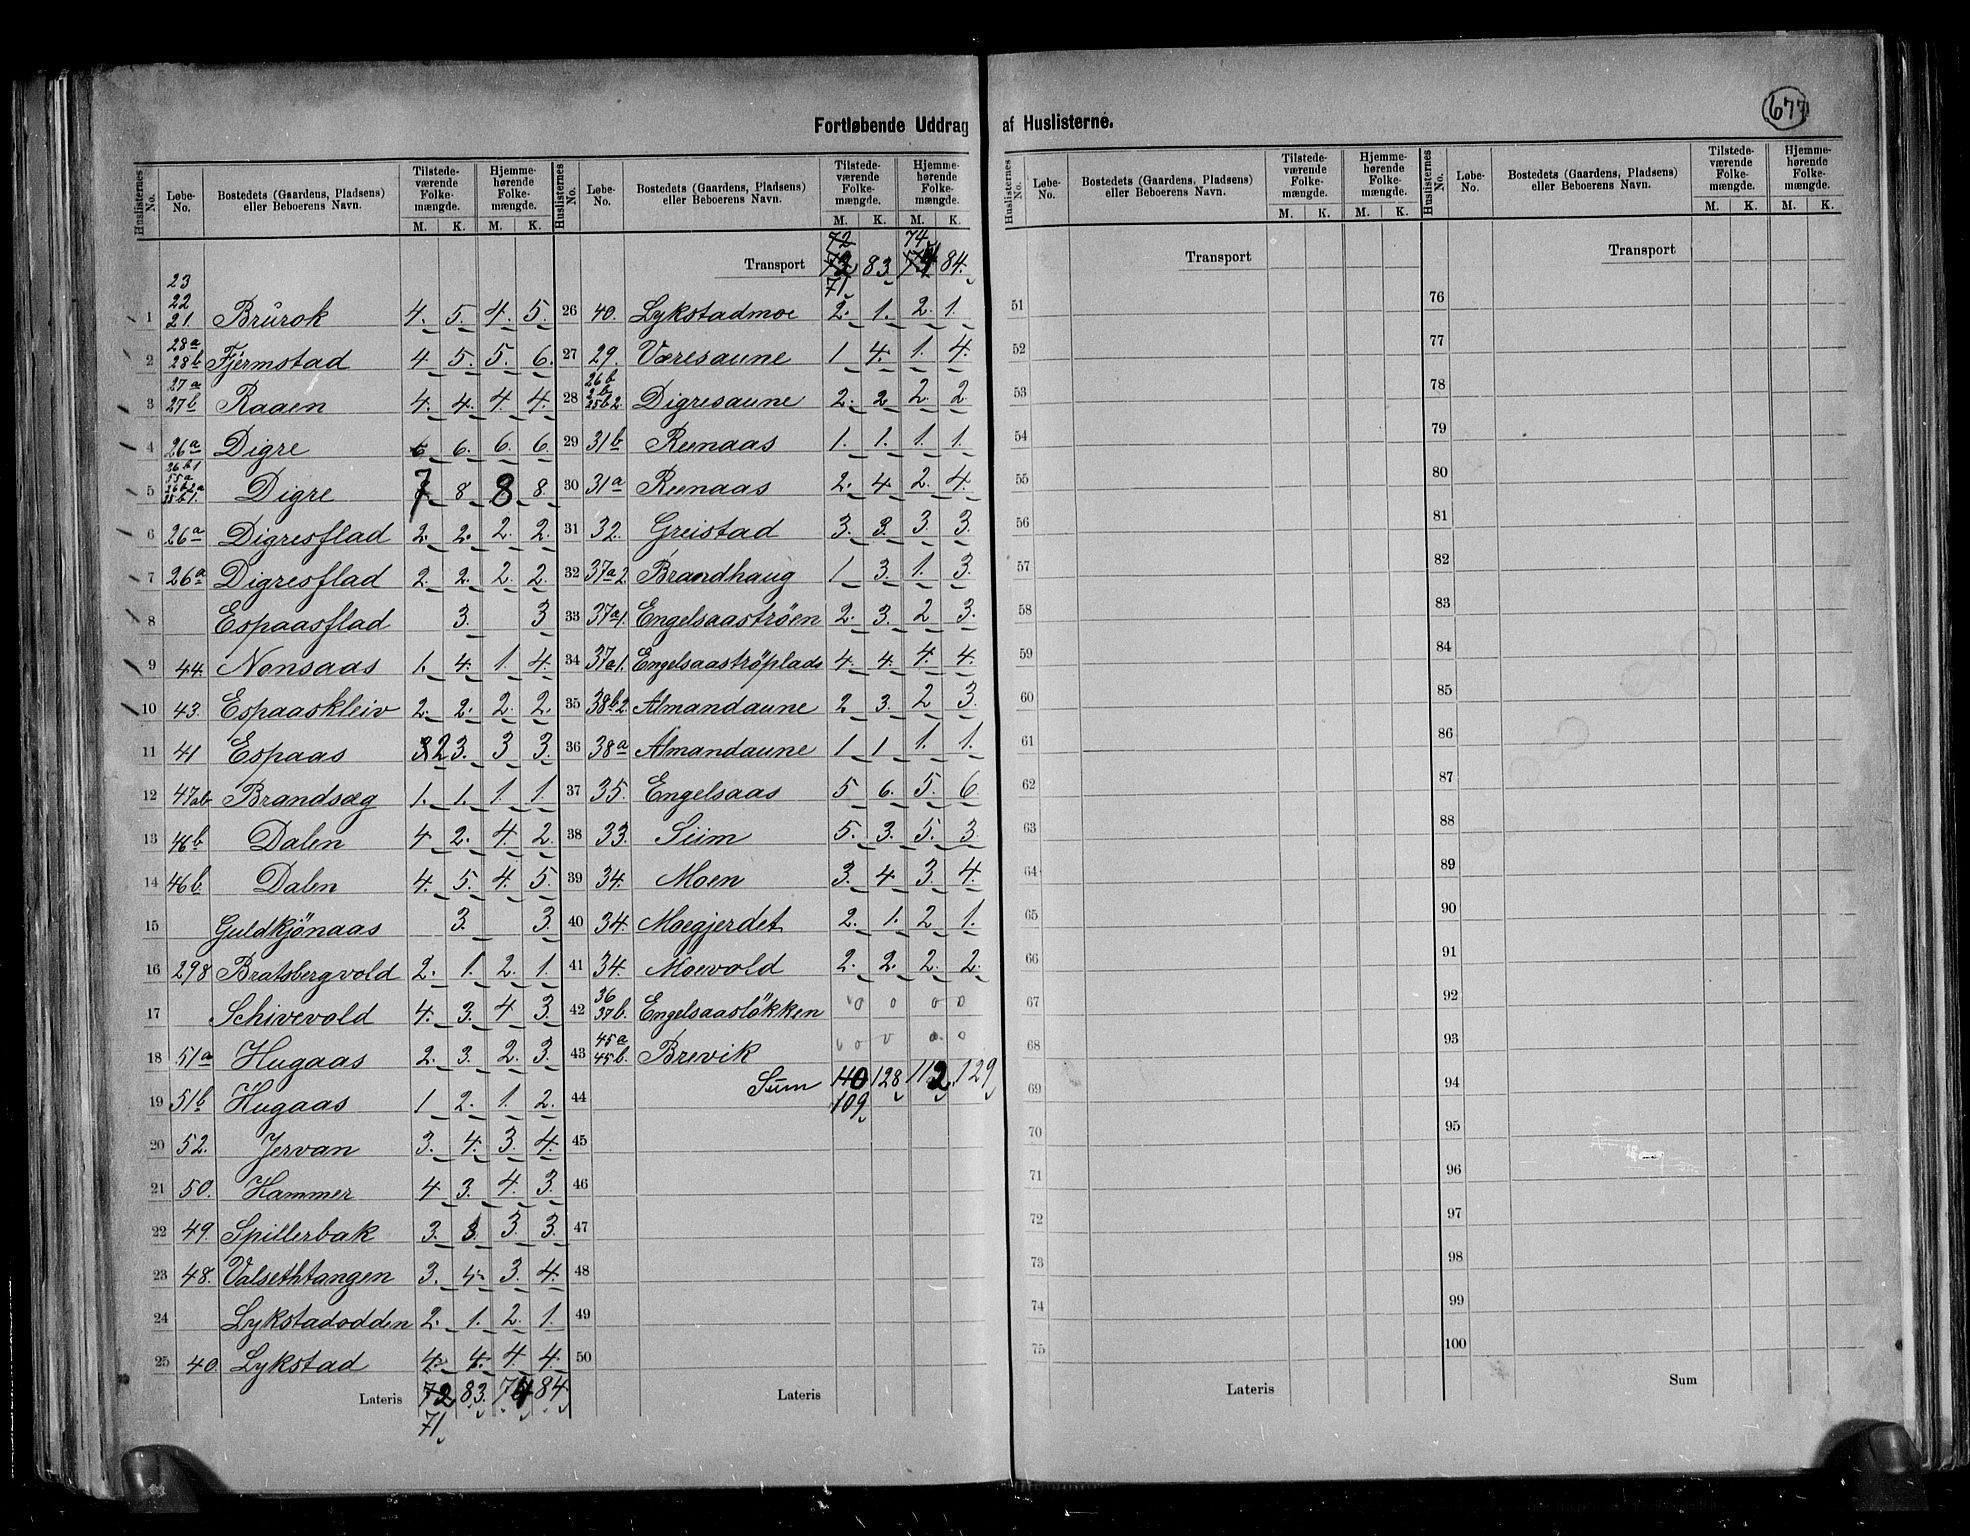 677
Fortløbende Uddrag af Huslisterne.
Huslisternes No. Løbe-No. Bostedets (Gaardens, Pladsens) eller Beboerens Navn. Tilstede-værende Folke-mængde. M. K. Hjemme-hørende Folke-mængde. M. K.
23
22
1 21. Brurok 4. 5. 4. 5.
28a
2 28b Fjermstad 4 5. 5. 6.
27a
3 27b Raaen 4. 4. 4. 4.
4 26a Digre 6 6. 6. 6.
5 Digre 7 8 8 8.
6 26a Digresflad 2. 2. 2. 2.
7 26a Digresflad 2. 2. 2. 2.
8 Espaasflad 3. 3
9 44. Nonsaas 1. 4. 1. 4.
10 43. Espaaskleiv 2. 2. 2. 2.
11 41 Espaas 32 3. 3 3.
12 47ab Brandsæg 1. 1. 1. 1.
13 46b Dalen 4 2. 4. 2.
14 46b. Dalen 4. 5. 4. 5.
15 Guldkjönaas 3. 3.
16 298 Bratsbergvold 2. 1. 2. 1.
17 Schivevold 4. 3. 4 3.
18 51a Hugaas 2. 3. 2. 3.
19 51b Hugaas 1 2. 1. 2.
20 52. Jervan 3. 4. 3. 4.
21 50. Hammer 4 3. 4. 3.
22 49. Spillerbak 3. 3. 3. 3.
23 48. Valsethtangen 3. 4. 3. 4.
24 Lykstadodden 2. 1. 2. 1.
25 40. Lykstad 4. 4. 4. 4.
Lateris 72 83. 74 84
71
Huslisternes No. Løbe-No. Bostedets (Gaardens, Pladsens) eller Beboerens Navn. Tilstede-værende Folke-mængde. M. K. Hjemme-hørende Folke-mængde. M. K.
72 74
Transport 72 83. 74 84.
71
26 40. Lykstadmoe 2. 1. 2. 1.
27 29. Væresaune 1 4. 1. 4.
26b
28 25b2. Digresaune 2. 2 2 2
29 31b Reenaas 1. 1. 1. 1.
30 31a Reenaas 2. 4. 2. 4.
31 32. Greistad 3. 3. 3. 3.
32 37a2 Brandhaug 1 3. 1. 3.
33 37a1. Engelsaastrøen 2. 3. 2 3.
34 37a1. Engelsaastrøplads 4. 4. 4. 4.
35 38b2. Almandaune 2 3. 2 3.
36 38a Almandaune 1 1 1. 1.
37 35. Engelsaas 5 6. 5. 6.
38 33. Siim 5. 3. 5. 3.
39 34. Moen 3. 4 3. 4.
40 34. Moegjerdet 2. 1. 2 1.
41 34. Moevold 2. 2. 2. 2.
36
42 37b. Engelsaaslökken 0 0 0 0
45a
43 45b. Brevik 0 0 0 0
Sum 140 128 112 129
44 109
45
46
47
48
49
50
Lateris
Huslisternes No. Løbe-No. Bostedets (Gaardens, Pladsens) eller Beboerens Navn. Tilstede-værende Folke-mængde. M. K. Hjemme-hørende Folke-mængde. M. K.
Transport
51
52
53
54
55
56
57
58
59
60
61
62
63
64
65
66
67
68
69
70
71
72
73
74
75
Lateris
Huslisternes No. Løbe-No. Bostedets (Gaardens, Pladsens) eller Beboerens Navn. Tilstede-værende Folke-mængde. M. K. Hjemme-hørende Folke-mængde. M. K.
Transport
76
77
78
79
80
81
82
83
84
85
86
87
88
89
90
91
92
93
94
95
96
97
98
99
100
Sum